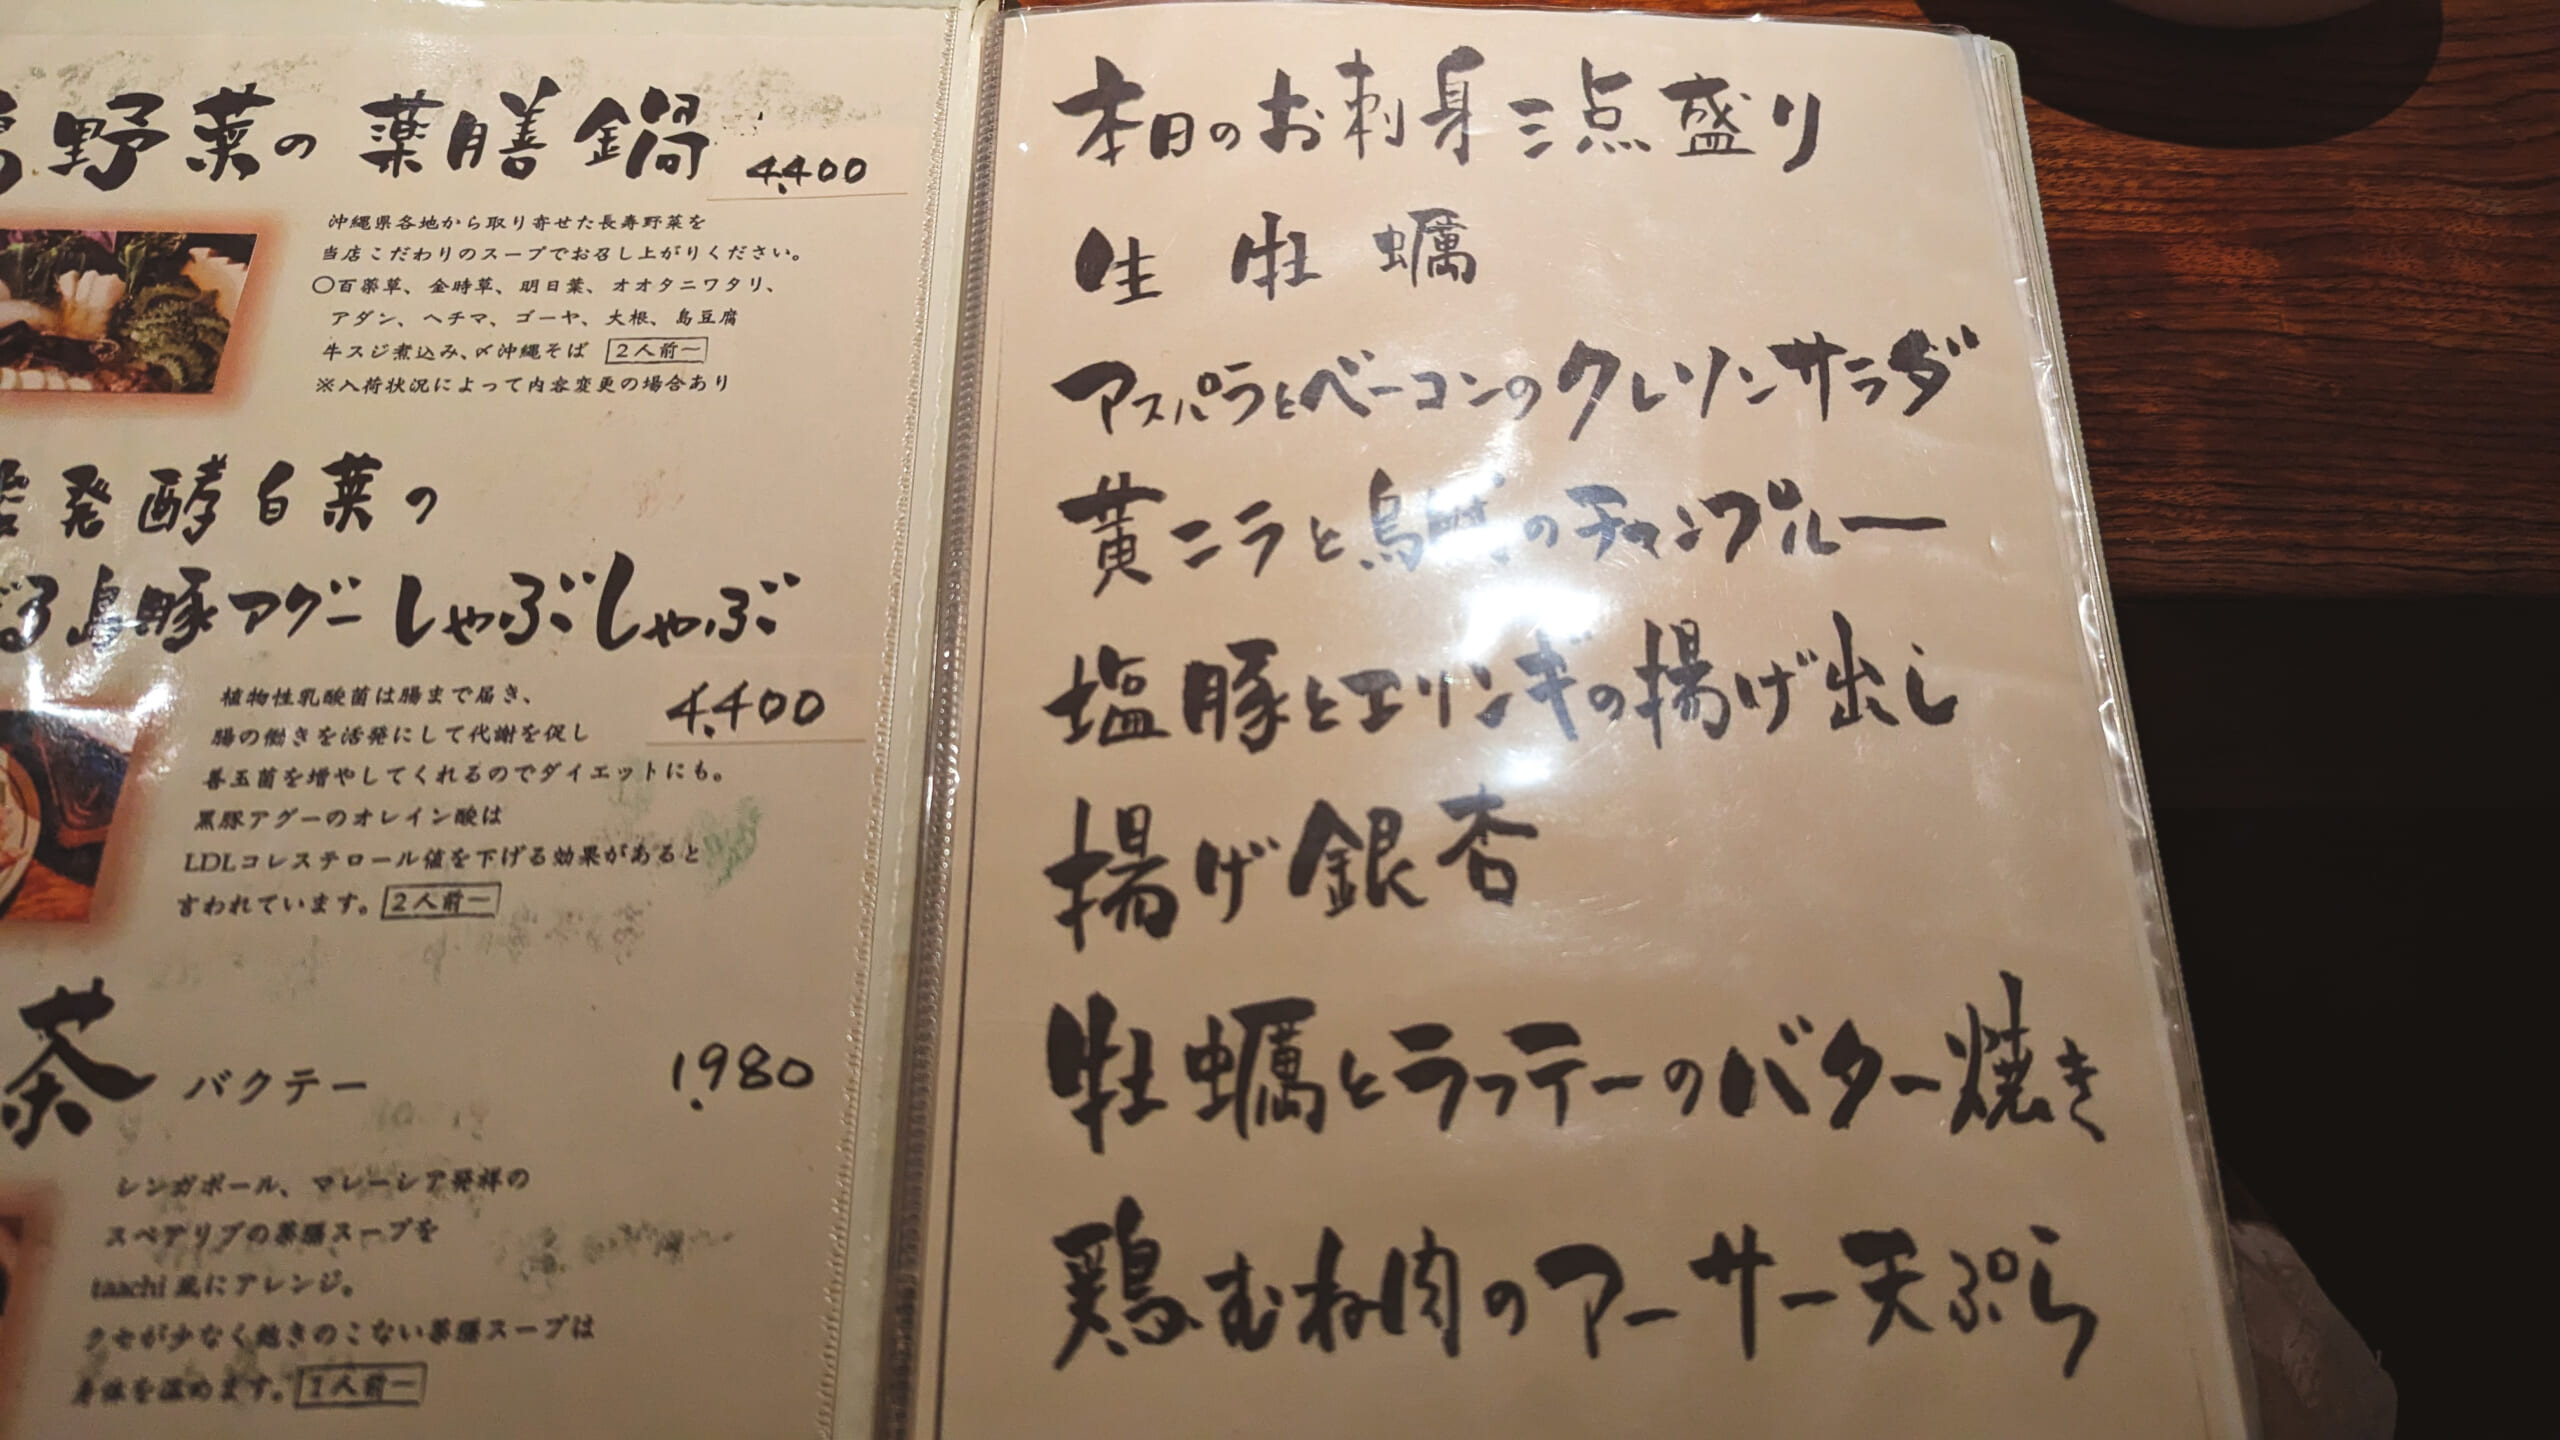 野菜の薬膳鍋 4,400
沖縄県各地から取り寄せた長寿野菜を
当店こだわりのスープでお召し上がりください。
○百薬草、金時草、明日葉、オオタニワタリ、
アダン、ヘチマ、ゴーヤ、大根、島豆腐
牛スジ煮込み、〆沖縄そば 2人前〜
※入荷状況によって内容変更の場合あり
発酵白菜の
る島豚アグーしゃぶしゃぶ
4,400
植物性乳酸菌は腸まで届き、
腸の働きを活発にして代謝を促し
善玉菌を増やしてくれるのでダイエットにも。
黒豚アグーのオレイン酸は
LDLコレステロール値を下げる効果があると
言われています。 2人前〜
茶 バクテー 1,980
シンガポール、マレーシア発祥の
スペアリブの薬膳スープを
taachi風にアレンジ。
クセが少なく飽きのこない薬膳スープは
身体を温めます。 1人前〜
本日のお刺身三点盛り
生牡蠣
アスパラとベーコンのクレソンサラダ
黄ニラと島豚のチャンプルー
塩豚とエリンギの揚げ出し
揚げ銀杏
牡蠣とラッテーのバター焼き
鶏むね肉のアーサー天ぷら